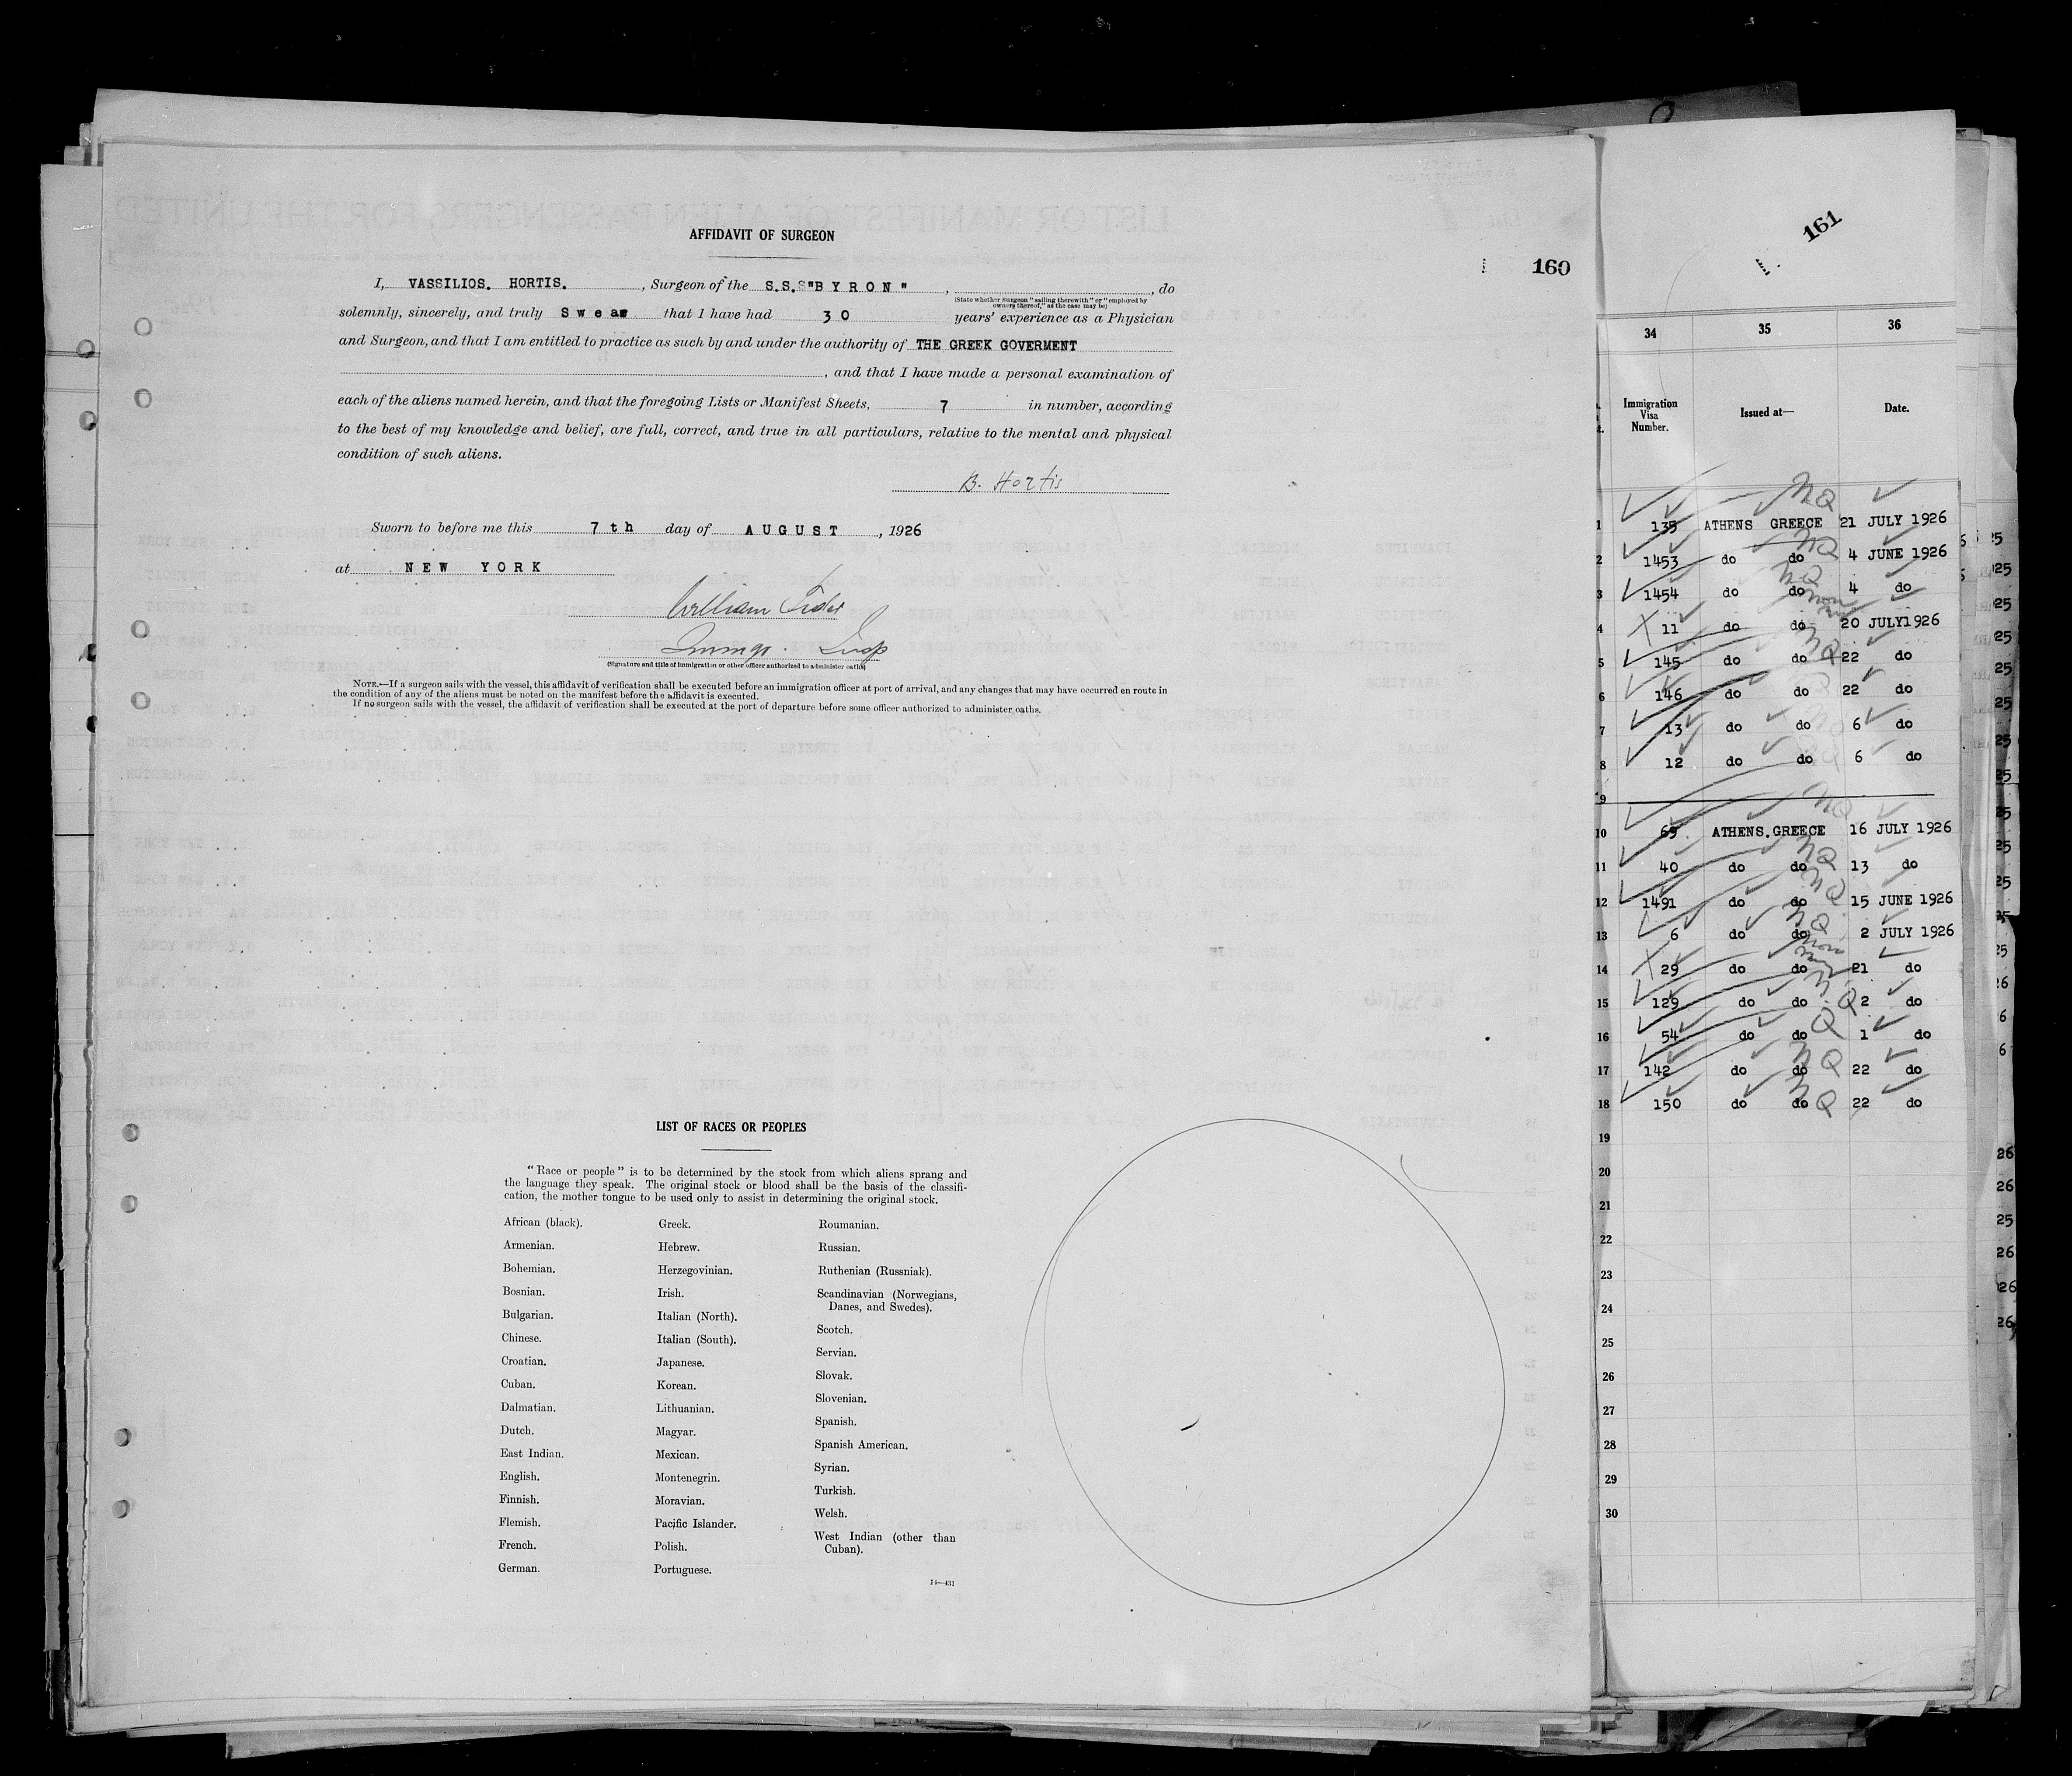 AFFIDAVIT OF SURGEON
160
I, VASSILIOS. HORTIS. , Surgeon of the S.S.S"BYRON" , , do
(State whether Surgeon "sailing therewith" or "employed by
owners thereof," as the case may be)
solemnly, sincerely, and truly Swear that I have had 30 years' experience as a Physician
and Surgeon, and that I am entitled to practice as such by and under the authority of THE GREEK GOVERMENT
, and that I have made a personal examination of
each of the aliens named herein, and that the foregoing Lists or Manifest Sheets, 7 in number, according
to the best of my knowledge and belief, are full, correct, and true in all particulars, relative to the mental and physical
condition of such aliens.
B. Hortis
Sworn to before me this 7th day of AUGUST , 1926
at NEW YORK
William
Insp
(Signature and title of immigration or other officer authorized to administer oaths)
NOTE.—If a surgeon sails with the vessel, this affidavit of verification shall be executed before an immigration officer at port of arrival, and any changes that may have occurred en route in
the condition of any of the aliens must be noted on the manifest before the affidavit is executed.
If no surgeon sails with the vessel, the affidavit of verification shall be executed at the port of departure before some officer authorized to administer oaths.
LIST OF RACES OR PEOPLES
"Race or people" is to be determined by the stock from which aliens sprang and
the language they speak. The original stock or blood shall be the basis of the classifi-
cation, the mother tongue to be used only to assist in determining the original stock.
African (black).
Armenian.
Bohemian.
Bosnian.
Bulgarian.
Chinese.
Croatian.
Cuban.
Dalmatian.
Dutch.
East Indian.
English.
Finnish.
Flemish.
French.
German.
Greek.
Hebrew.
Herzegovinian.
Irish.
Italian (North).
Italian (South).
Japanese.
Korean.
Lithuanian.
Magyar.
Mexican.
Montenegrin.
Moravian.
Pacific Islander.
Polish.
Portuguese.
Roumanian.
Russian.
Ruthenian (Russniak).
Scandinavian (Norwegians,
Danes, and Swedes).
Scotch.
Servian.
Slovak.
Slovenian.
Spanish.
Spanish American.
Syrian.
Turkish.
Welsh.
West Indian (other than
Cuban).
14—431
161
34 35 36
Immigration
Visa
Number.
Issued at—
Date.
1 135 ATHENS GREECE NQ 21 JULY 1926
2 1453 do do NQ 4 JUNE 1926
3 1454 do do NQ 4 do
4 11 do do 20 JULY1926
5 145 do do NQ 22 do
6 146 do do Q 22 do
7 13 do do NQ 6 do
8 12 do do NQ 6 do
9
10 69 ATHENS.GREECE NQ 16 JULY 1926
11 40 do do NQ 13 do
12 1491 do do NQ 15 JUNE 1926
13 6 do do NQ 2 JULY 1926
14 29 do do 21 do
15 129 do do NQ 2 do
16 54 do do Q 1 do
17 142 do do NQ 22 do
18 150 do do NQ 22 do
19
20
21
22
23
24
25
26
27
28
29
30